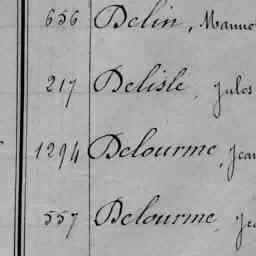 656 Delin, Manue
217 Delisle, Jules
1294 Delourme, Jean
557 Delourme, Je